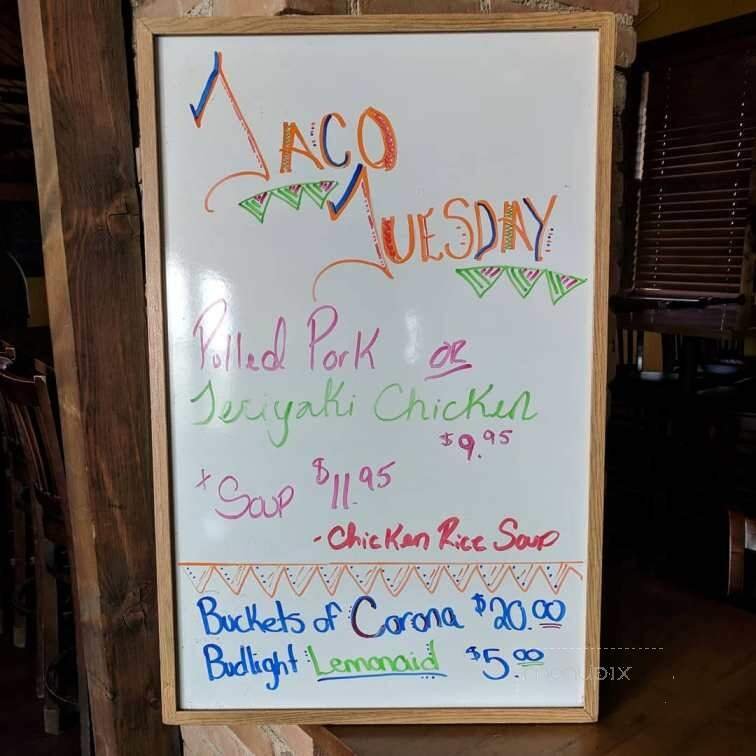 TACO
TUESDAY
Pulled Pork OR
Teriyaki Chicken
$9.95
+ Soup $11.95
- Chicken Rice Soup
Buckets of Corona $20.00
Budlight Lemonaid $5.00
menupix